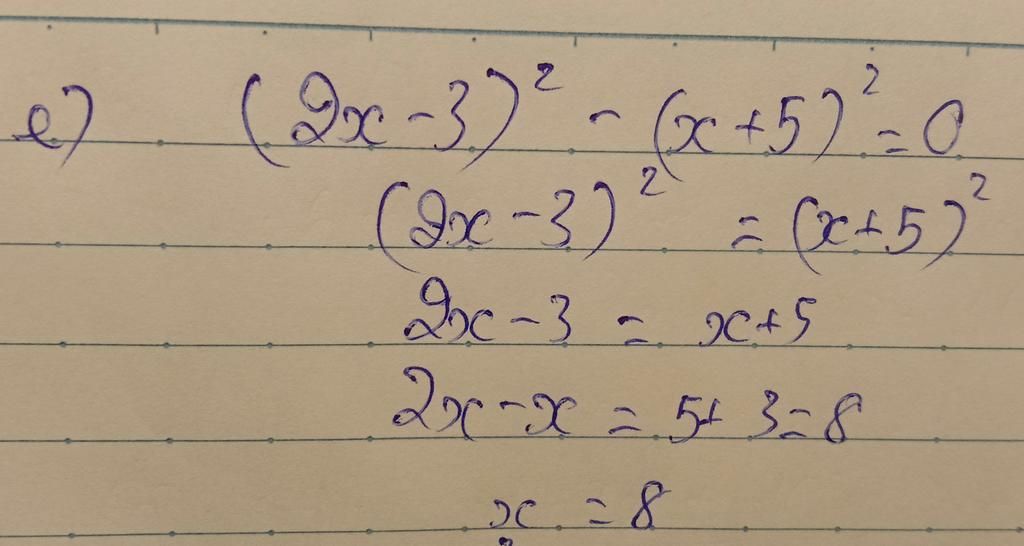 e) (2x-3)² - (x+5)² = 0
(2x-3)² = (x+5)²
2x-3 = x+5
2x-x = 5+3=8
x = 8